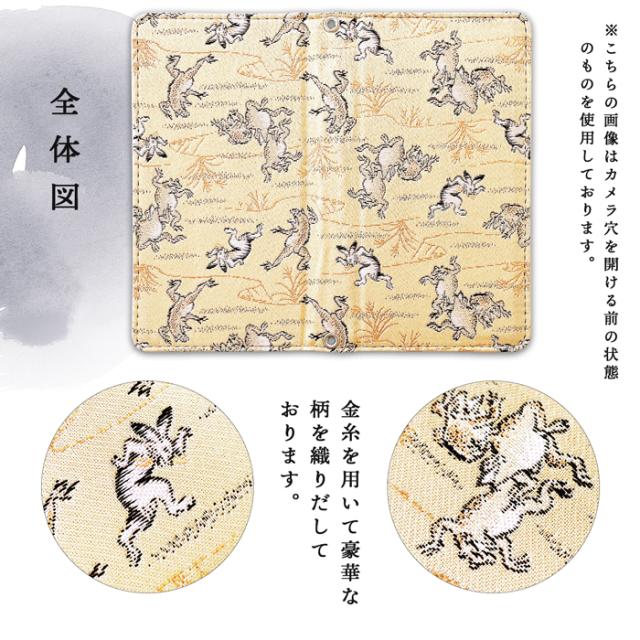 ※こちらの画像はカメラ穴を開ける前の状態
のものを使用しております。
全体図
金糸を用いて豪華な
柄を織りだして
おります。